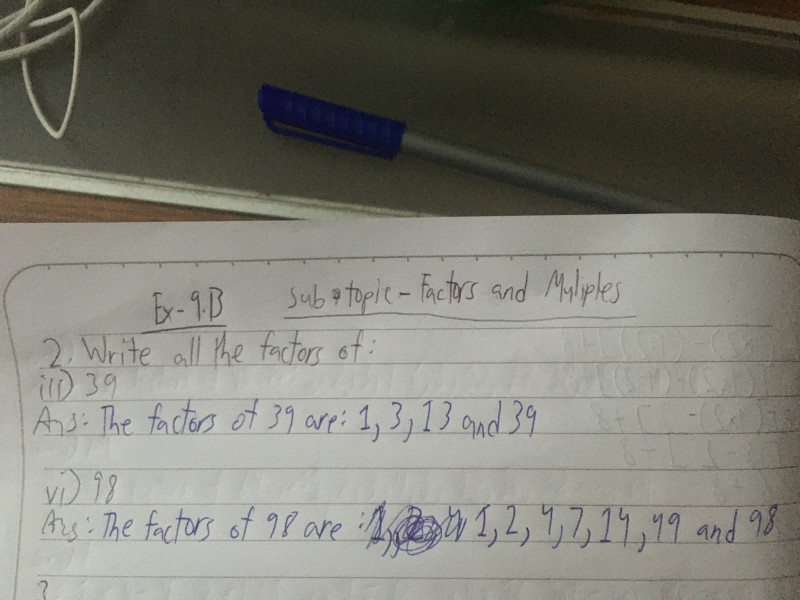 Ex-9.B Sub-topic - Factors and Muliples
2. Write all the factors of:
iii) 39
Ans: The factors of 39 are: 1, 3, 13 and 39
vi) 98
Ans: The factors of 98 are: 1, 2, 4, 7, 14, 49 and 98